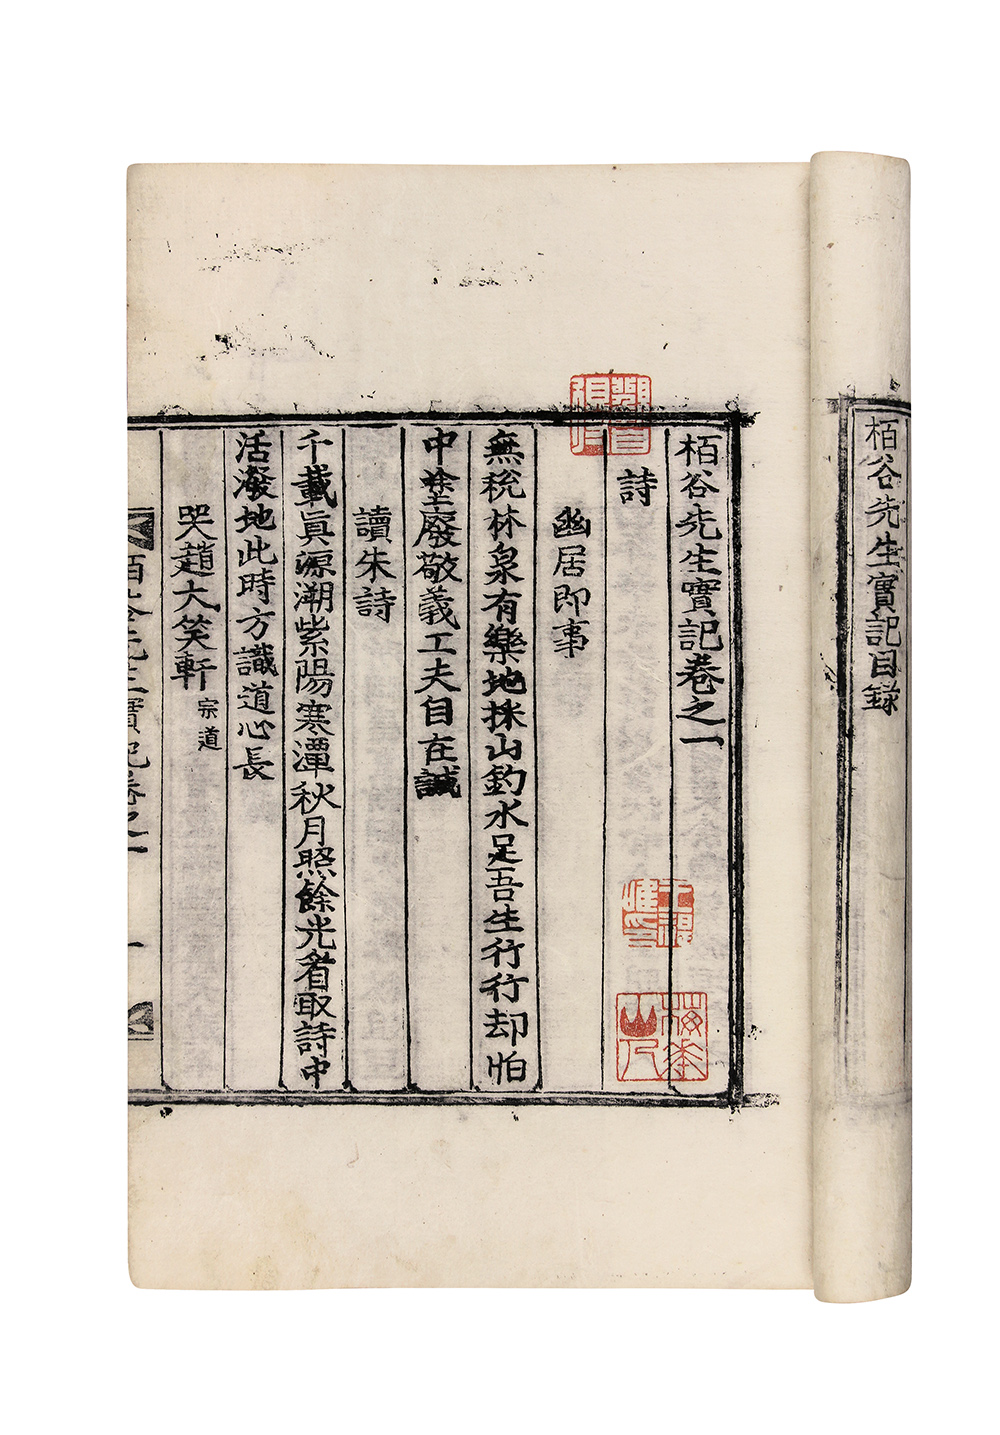 栢谷先生實記目録
栢谷先生實記卷之一
詩
幽居即事
無税林泉有樂地採山釣水足吾生行行却怕
中塗廢敬義工夫自在誠
讀朱詩
千載眞源溯紫陽寒潭秋月照餘光看取詩中
活潑地此時方識道心長
哭趙大笑軒 宗道
栢谷先生實記卷之一
一
梅華山人